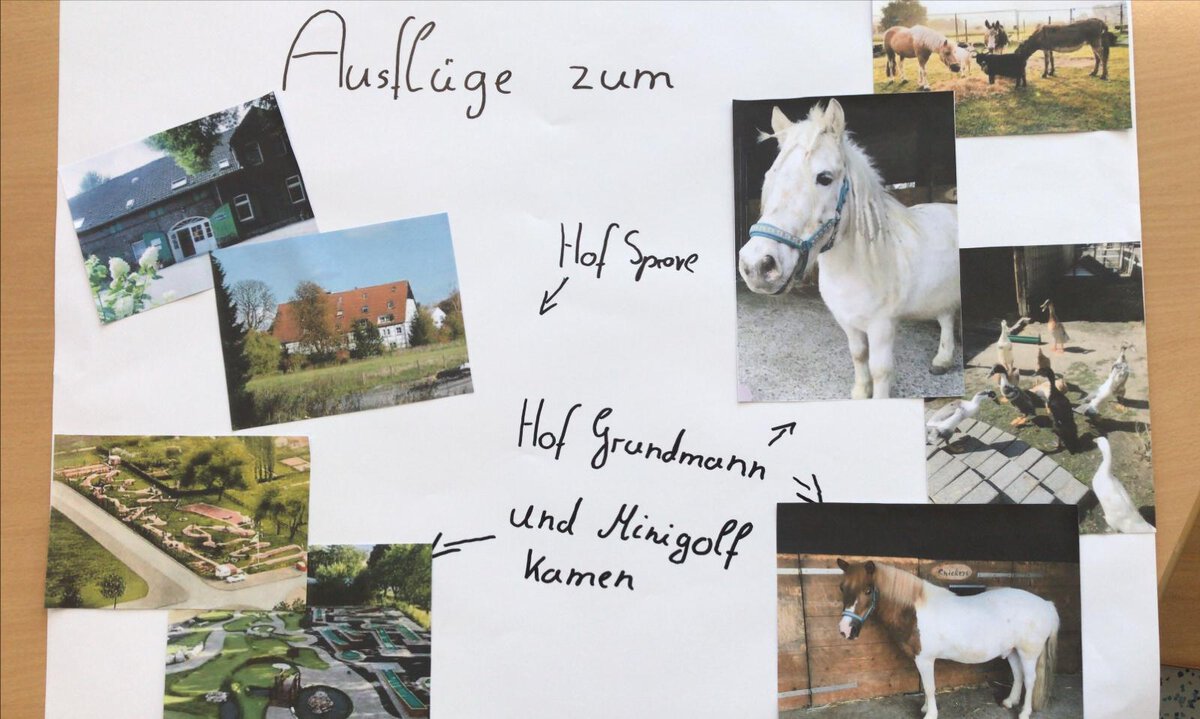 Ausflüge zum
Hof Sprave
Hof Grundmann
und Minigolf
Kamen